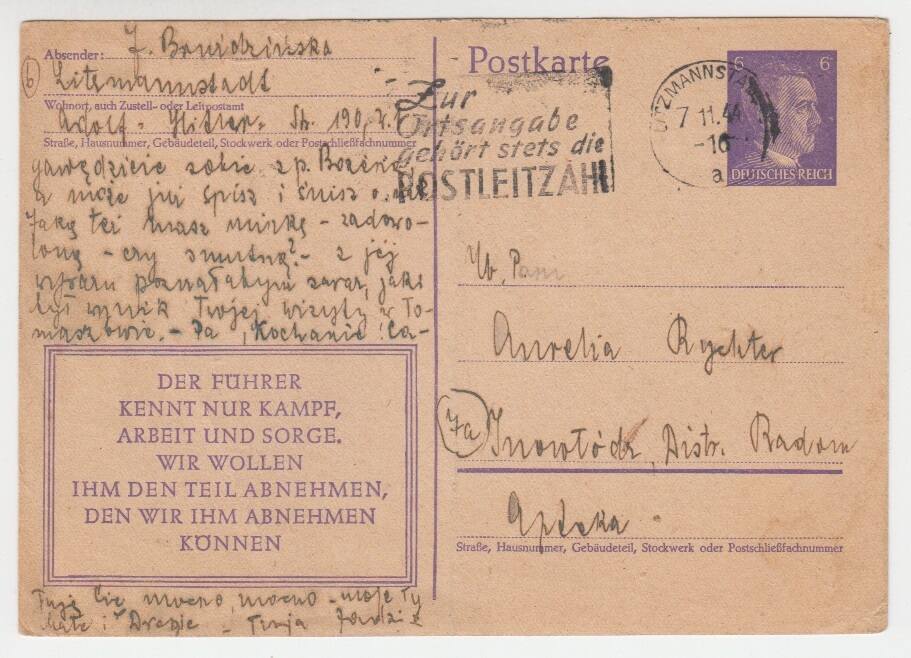 Absender: J. Brwidzińska
(b) Litzmannstadt
Wohnort, auch Zustell- oder Leitpostamt
Adolf-Hitler-Str. 190,
Straße, Hausnummer, Gebäudeteil, Stockwerk oder Postschließfachnummer
gawędzicie sobie z p.
a może już śpisz i śnisz o
Jaką też masz minkę - zadowo-
loną - czy smutną? - z jej
wyrazu poznałabym zaraz, jaki
był wynik Twojej wizyty w To-
maszowie. - Pa, Kochanie! Ca-
DER FÜHRER
KENNT NUR KAMPF,
ARBEIT UND SORGE.
WIR WOLLEN
IHM DEN TEIL ABNEHMEN,
DEN WIR IHM ABNEHMEN
KÖNNEN
Cię mocno, mocno - moje Ty
i Drogie - Twoja
Postkarte
Zur
Ortsangabe
gehört stets die
POSTLEITZAHL
LITZMANNSTADT
7 11.44
-16-
a
6 6
DEUTSCHES REICH
Wb. Pani
Aurelia Rychter
(7a) Inowłódz, Distr. Radom
Apteka
Straße, Hausnummer, Gebäudeteil, Stockwerk oder Postschließfachnummer